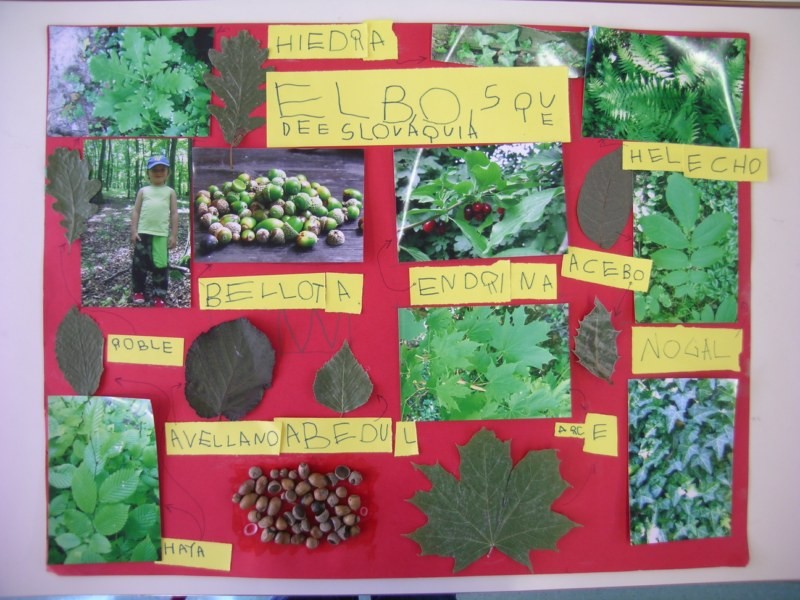 HIEDRA
EL BOSQUE
DE ESLOVÁQUIA
HELECHO
BELLOTA
ENDRINA
ACEBO
ROBLE
NOGAL
AVELLANO
ABEDÚL
ARCE
HAYA